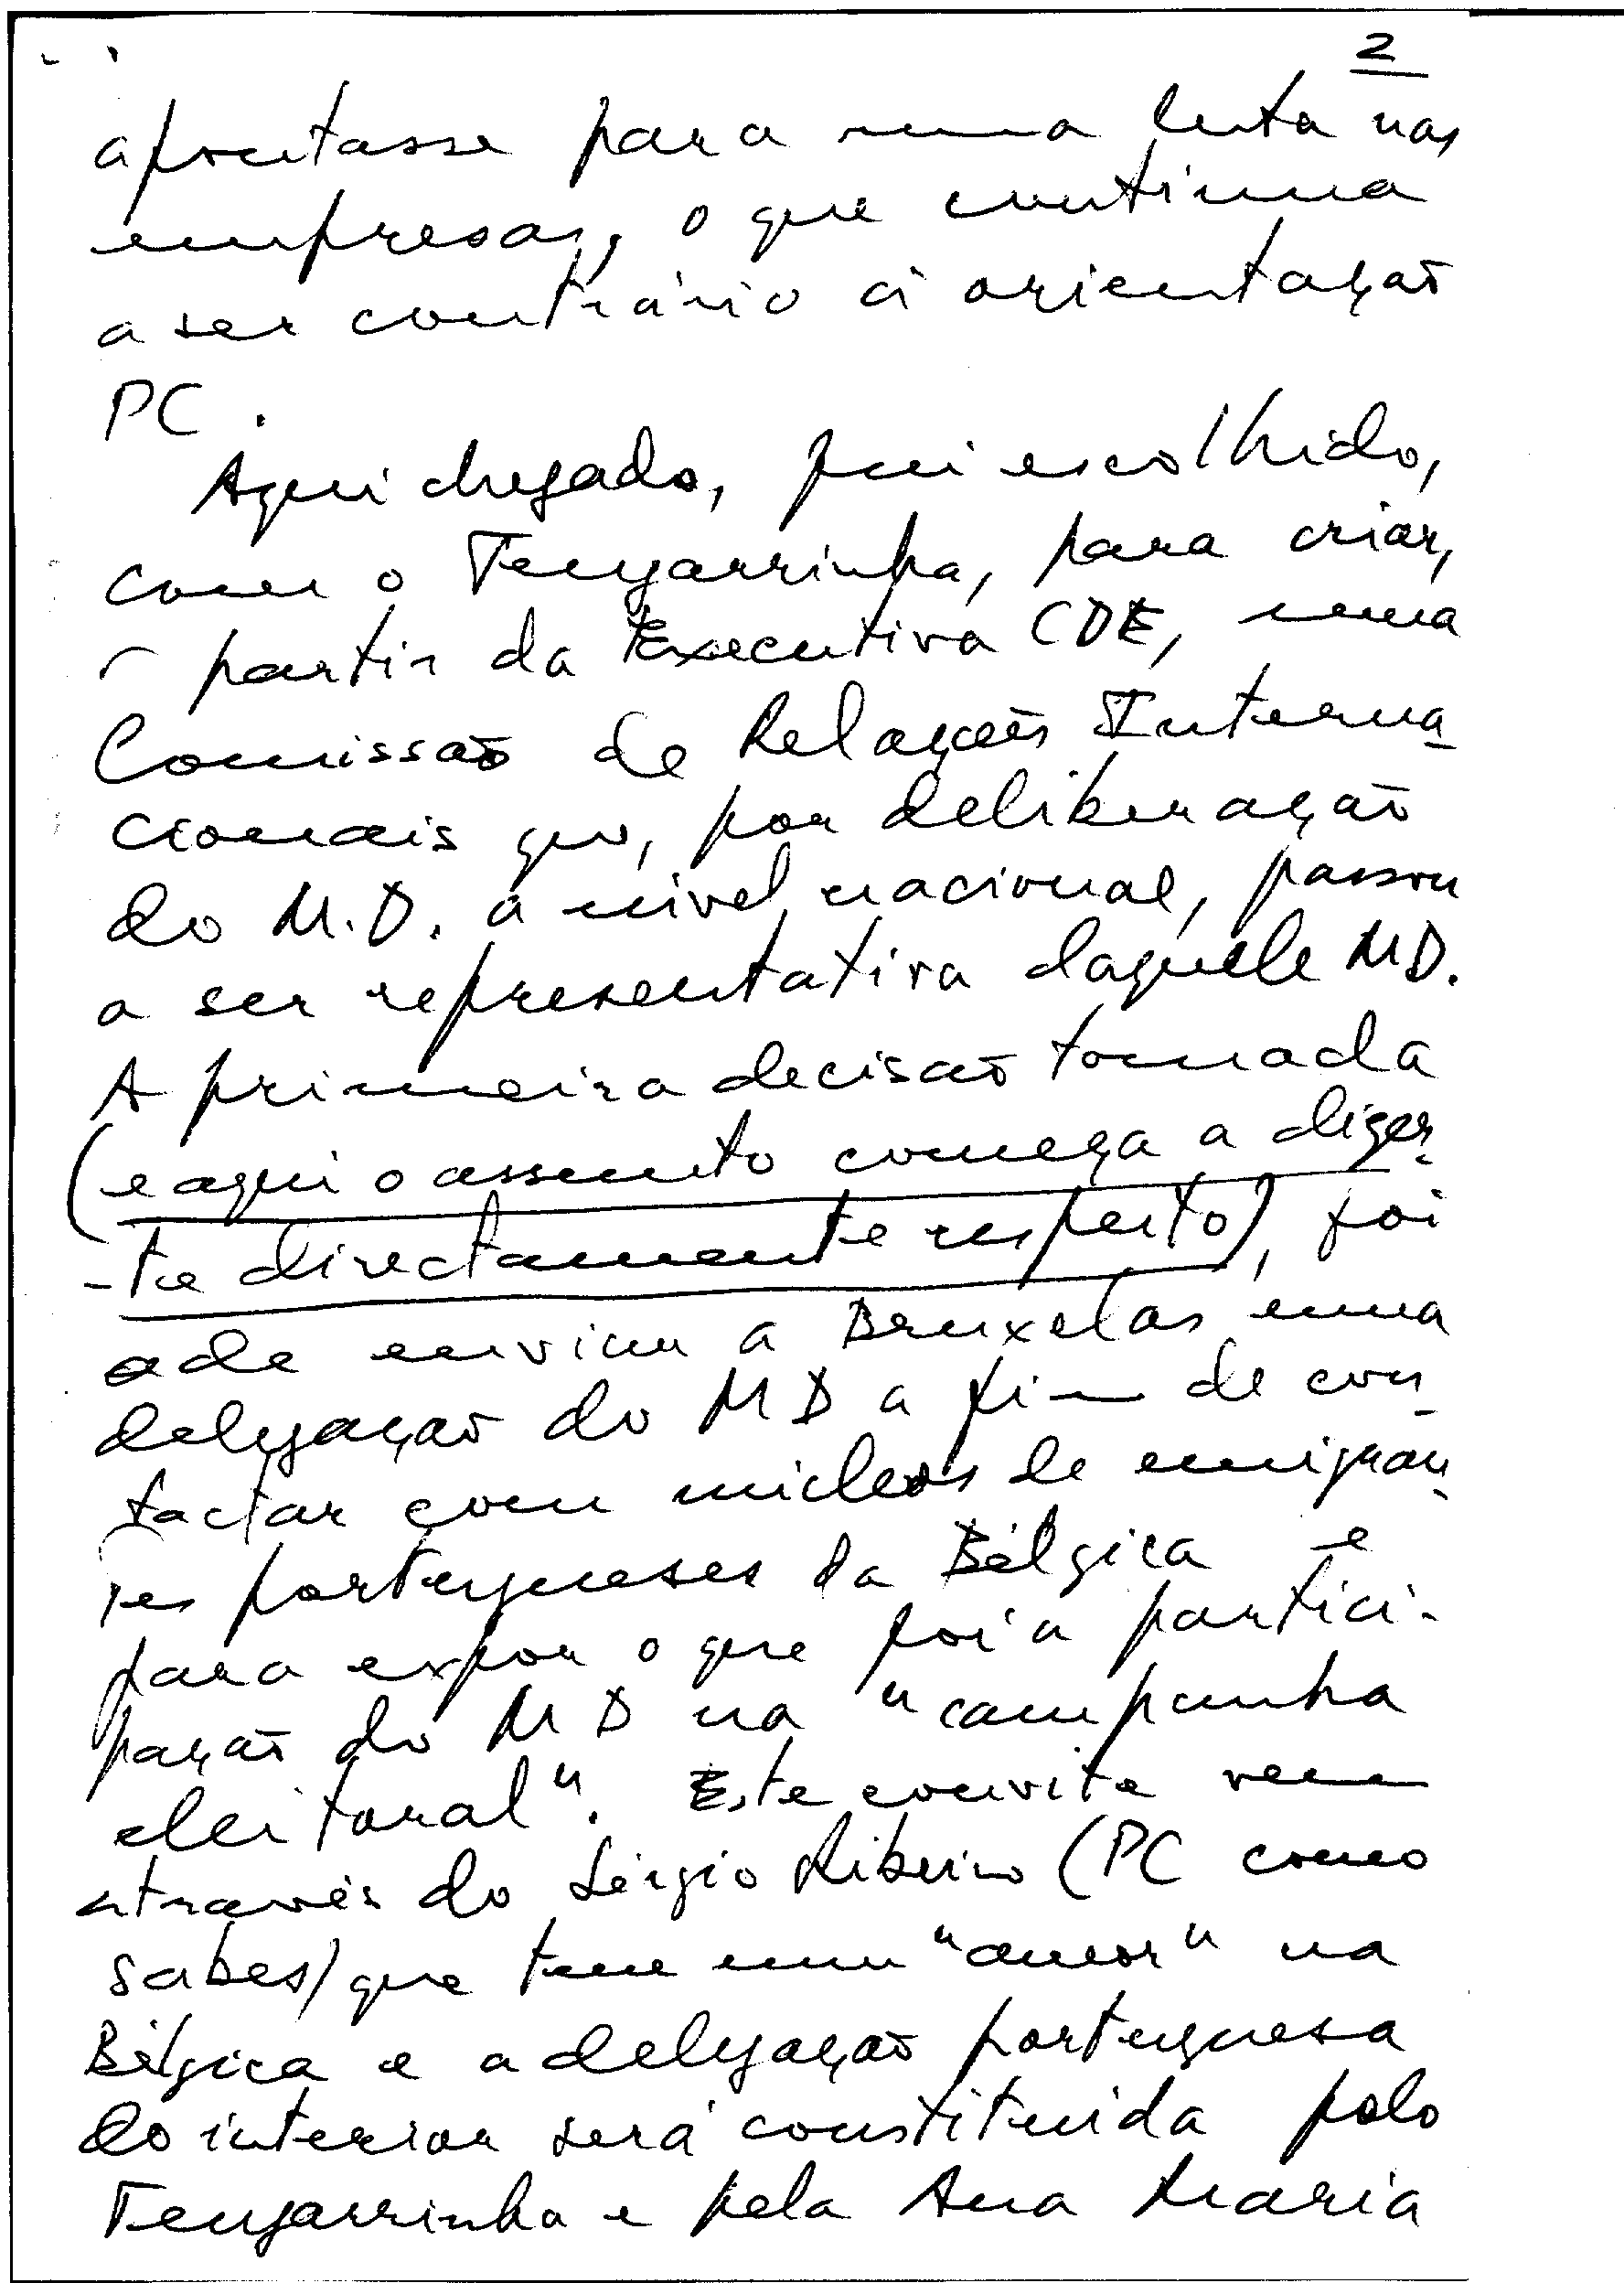 2
apontasse para uma luta nas
empresas, o que continua
a ser contrário à orientação
PC.
Aqui chegado, fui escolhido,
com o Tengarrinha, para criar,
partir da Executiva CDE, uma
Comissão de Relações Interna-
cionais que, por deliberação
do M.D. a nível nacional, passou
a ser representativa daquele MD.
A primeira decisão tomada
(e aqui o assunto começa a dizer-
-te directamente respeito), foi
a de enviar a Bruxelas uma
delegação do MD a fim de con-
tactar com núcleos de emigran-
tes portugueses da Bélgica e
para expor o que foi a partici-
pação do MD na "campanha
eleitoral". Este convite vem
através do Sérgio Ribeiro (PC como
sabes) que tem um "amor" na
Bélgica e a delegação portuguesa
do interior será constituída pelo
Tengarrinha e pela Ana Maria